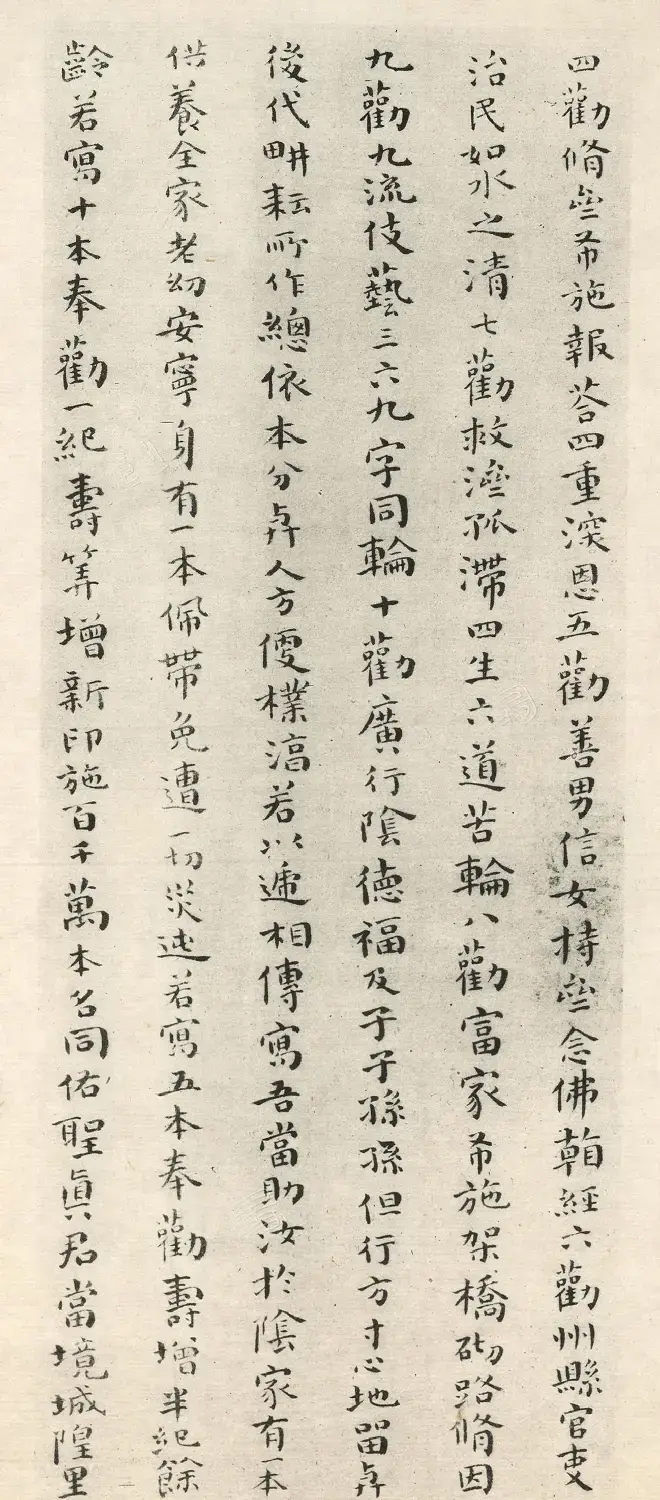 四勸脩齋布施報荅四重深恩五勸善男信女持齋念佛看經六勸州縣官吏
治民如水之清七勸救濟孤滯四生六道苦輪八勸富家布施架橋砌路脩因
九勸九流伎藝三六九字同輪十勸廣行陰德福及子子孫孫但行方寸心地留与
後代畊耘所作總依本分与人方便樸漓若以遞相傳寫吾當助汝於陰家有一本
供養全家老幼安寧身有一本佩帶免遭一切災迍若寫五本奉勸壽增半紀餘
齡若寫十本奉勸一紀壽筭增新印施百千萬本名同佑聖眞君當境城隍里